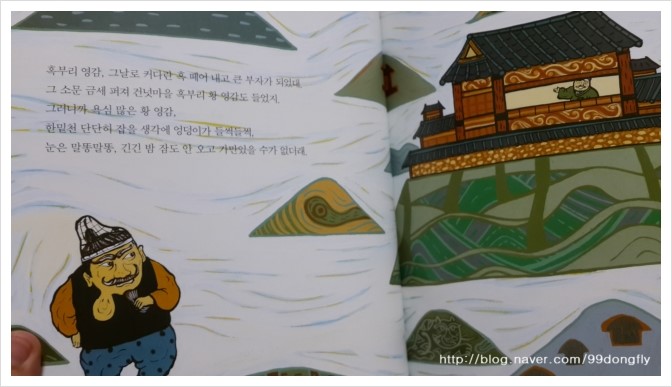 혹부리 영감, 그날로 커다란 혹 떼어 내고 큰 부자가 되었대.
그 소문 금세 퍼져 건넛마을 혹부리 황 영감도 들었지.
그러니까 욕심 많은 황 영감,
한밑천 단단히 잡을 생각에 엉덩이가 들썩들썩,
눈은 말똥말똥, 긴긴 밤 잠도 안 오고 가만있을 수가 없더래.
http://blog.naver.com/99dongfly